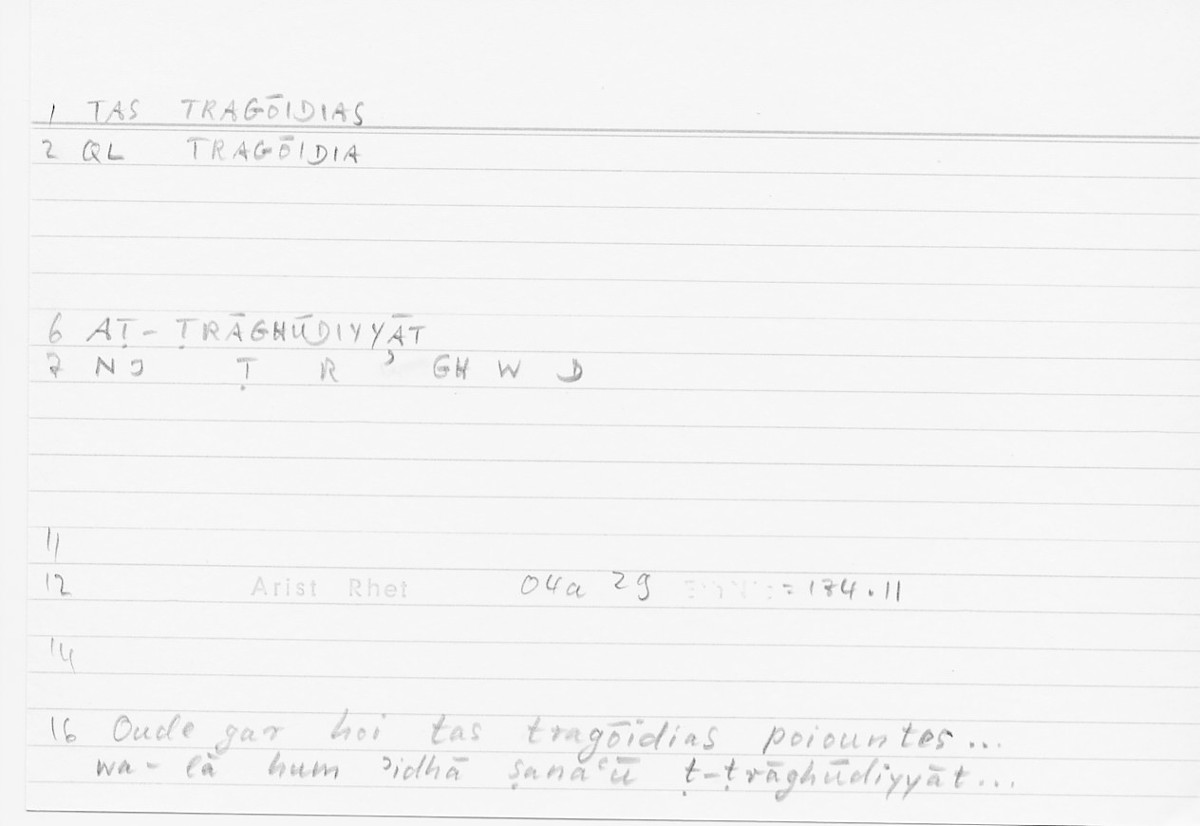 1 TAS TRAGŌIDIAS
2 QL TRAGŌIDIA
6 AṬ- ṬRĀGHŪDIYYĀT
7 NJ Ṭ R ʾ GH W D
11
12 Arist Rhet 04a 29 = 174.11
14
16 Oude gar hoi tas tragōidias poiountes...
wa-lā hum ʾidhā ṣanaʿū ṭ-ṭrāghūdiyyāt...